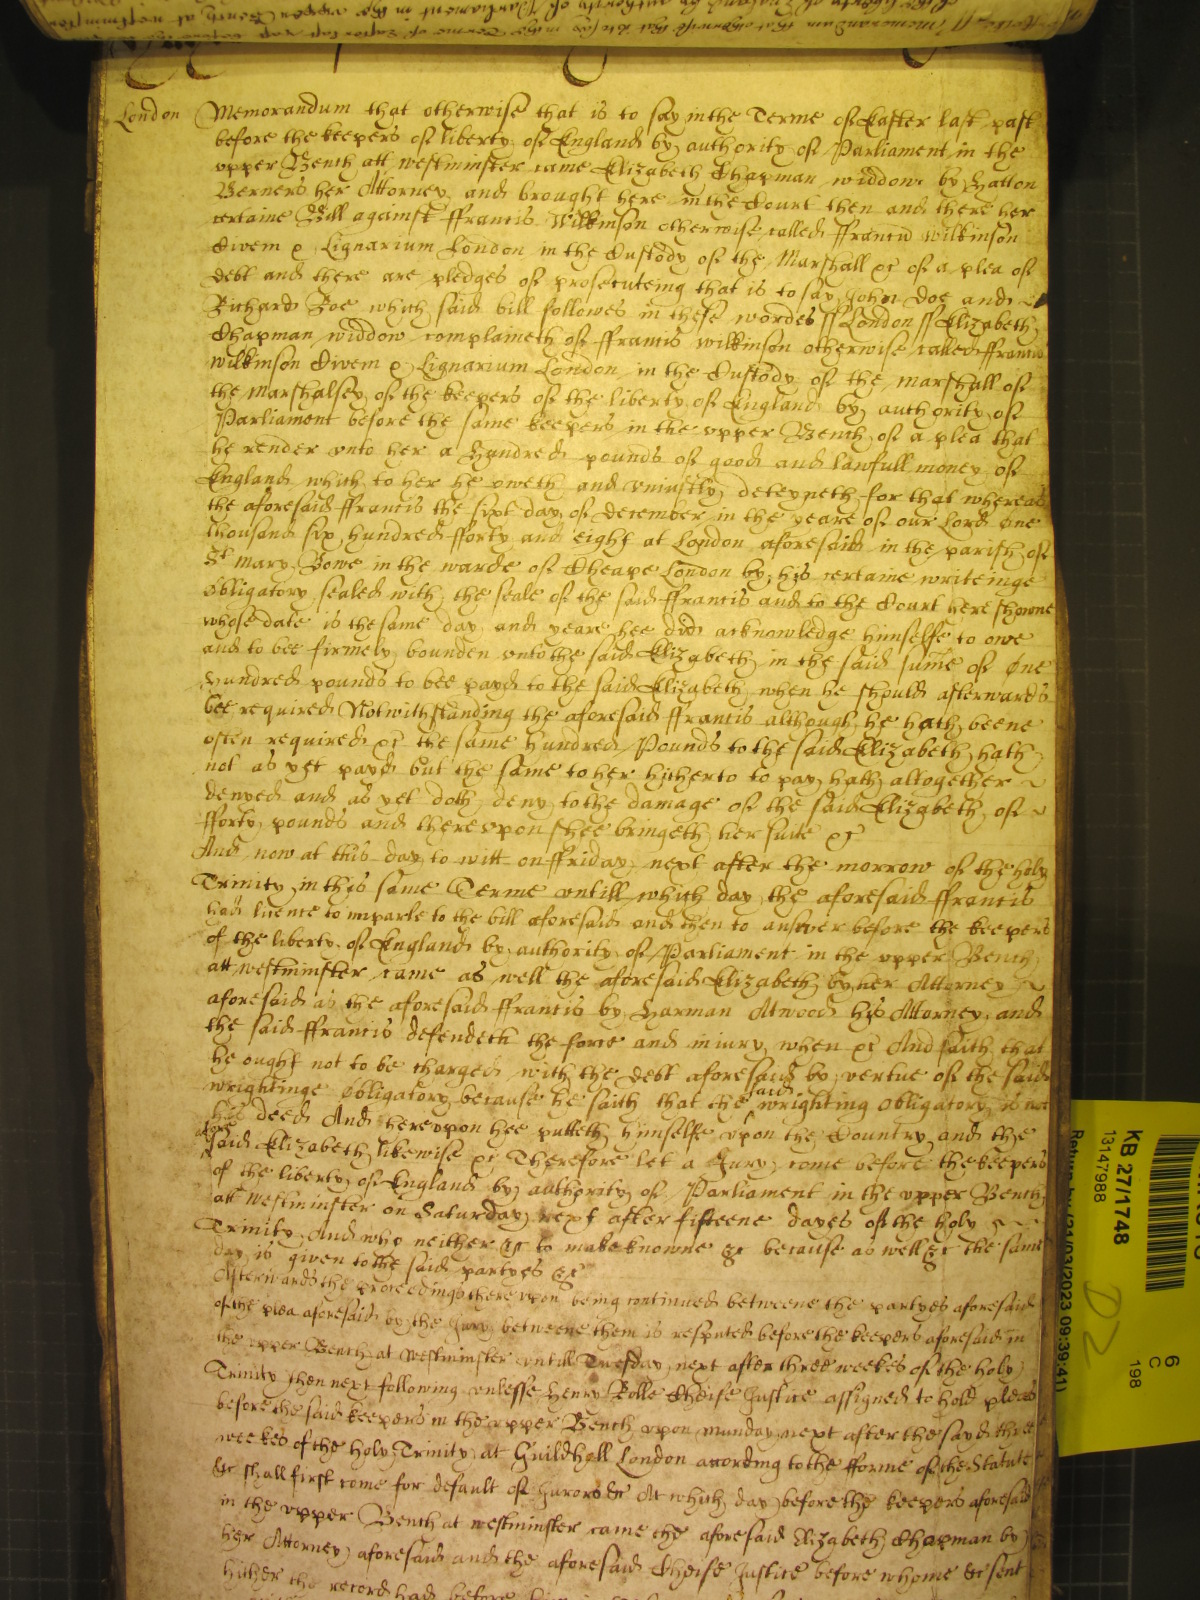 London Memorandum that otherwise that is to say in the Terme of Easter last past
before the keepers of liberty of England by authority of Parliament in the
upper Bench att westminster came Elizabeth Chapman widdow by Hatton
Berners her Attorney and brought here in the Court then and there her
certaine Bill against ffrancis Wilkinson otherwise called ffrancis wilkinson
Civem et Lignarium London in the Custody of the Marshall &c of a plea of
debt and there are pledges of prosecuteing that is to say John Doe and
Richard Roe which said bill followes in these wordes ss London ss Elizabeth
Chapman widdow complaineth of ffrancis wilkinson otherwise called ffrancis
wilkinson Civem et Lignarium London in the Custody of the marshall of
the marshalsey of the keepers of the liberty of England by authority of
Parliament before the same keepers in the upper Bench of a plea that
he render unto her a hundred pounds of good and lawfull money of
England which to her he oweth and uniustly deteyneth for that whereas
the aforesaid ffrancis the sixt day of december in the yeare of our Lord One
thousand six hundred fforty and eight at London aforesaid in the parish of
St Mary Bowe in the warde of Cheape London by his certaine writeinge
Obligatory sealed with the seale of the said ffrancis and to the Court here showne
whose date is the same day and yeare hee did acknowledge himselfe to owe
and to bee firmely bounden unto the said Elizabeth in the said sume of One
hundred pounds to bee payd to the said Elizabeth when he should afterwards
bee required Notwithstanding the aforesaid ffrancis although he hath beene
often required &c the same hundred Pounds to the said Elizabeth hath
not as yet payd but the same to her hitherto to pay hath altogether
denyed and as yet doth deny to the damage of the said Elizabeth of
fforty pounds and thereupon shee bringeth her suite &c
And now at this day to witt on ffriday next after the morrow of the holy
Trinity in this same Terme untill which day the aforesaid ffrancis
had licence to imparle to the bill aforesaid and then to answer before the keepers
of the liberty of England by authority of Parliament in the upper Bench
att westminster came as well the aforesaid Elizabeth by her Attorney
aforesaid as the aforesaid ffrancis by Harman Atwood his Attorney and
the said ffrancis defendeth the force and iniury when &c And saith that
he ought not to be charged with the debt aforesaid by vertue of the said
wrightinge Obligatory because he saith that the said wrighting Obligatory is not
his deed And hereupon hee putteth himselfe upon the Country and the
afore said Elizabeth likewise &c Therefore let a Jury come before the keepers
of the liberty of England by authority of Parliament in the upper Bench
att westminster on Saturday next after fifteene dayes of the holy
Trinity And who neither &c to make knowne &c because as well &c the same
day is given to the said partyes &c
Afterwards the proceedings thereupon being continued betweene the partyes aforesaid
of the plea aforesaid by the Jury betweene them is respited before the keepers aforesaid in
the upper Bench at Westminster untill Tuesday next after three weekes of the holy
Trinity then next following unlesse Henry Rolle Cheife Justice assigned to hold pleas
before the said keepers in the upper Bench upon munday next after the sayd three
weekes of the holy Trinity at Guildhall London according to the fforme of the Statute
&c shall first come for default of Jurors &c At which day before the keepers aforesaid
in the upper Bench at westminster came the aforesaid Elizabeth Chapman by
her Attorney aforesaid and the aforesaid Cheife Justice before whome &c sent
hither the record had before
KB 27/1748
13147988
(21/03/2023 09:39:41)
6
C
198
D2